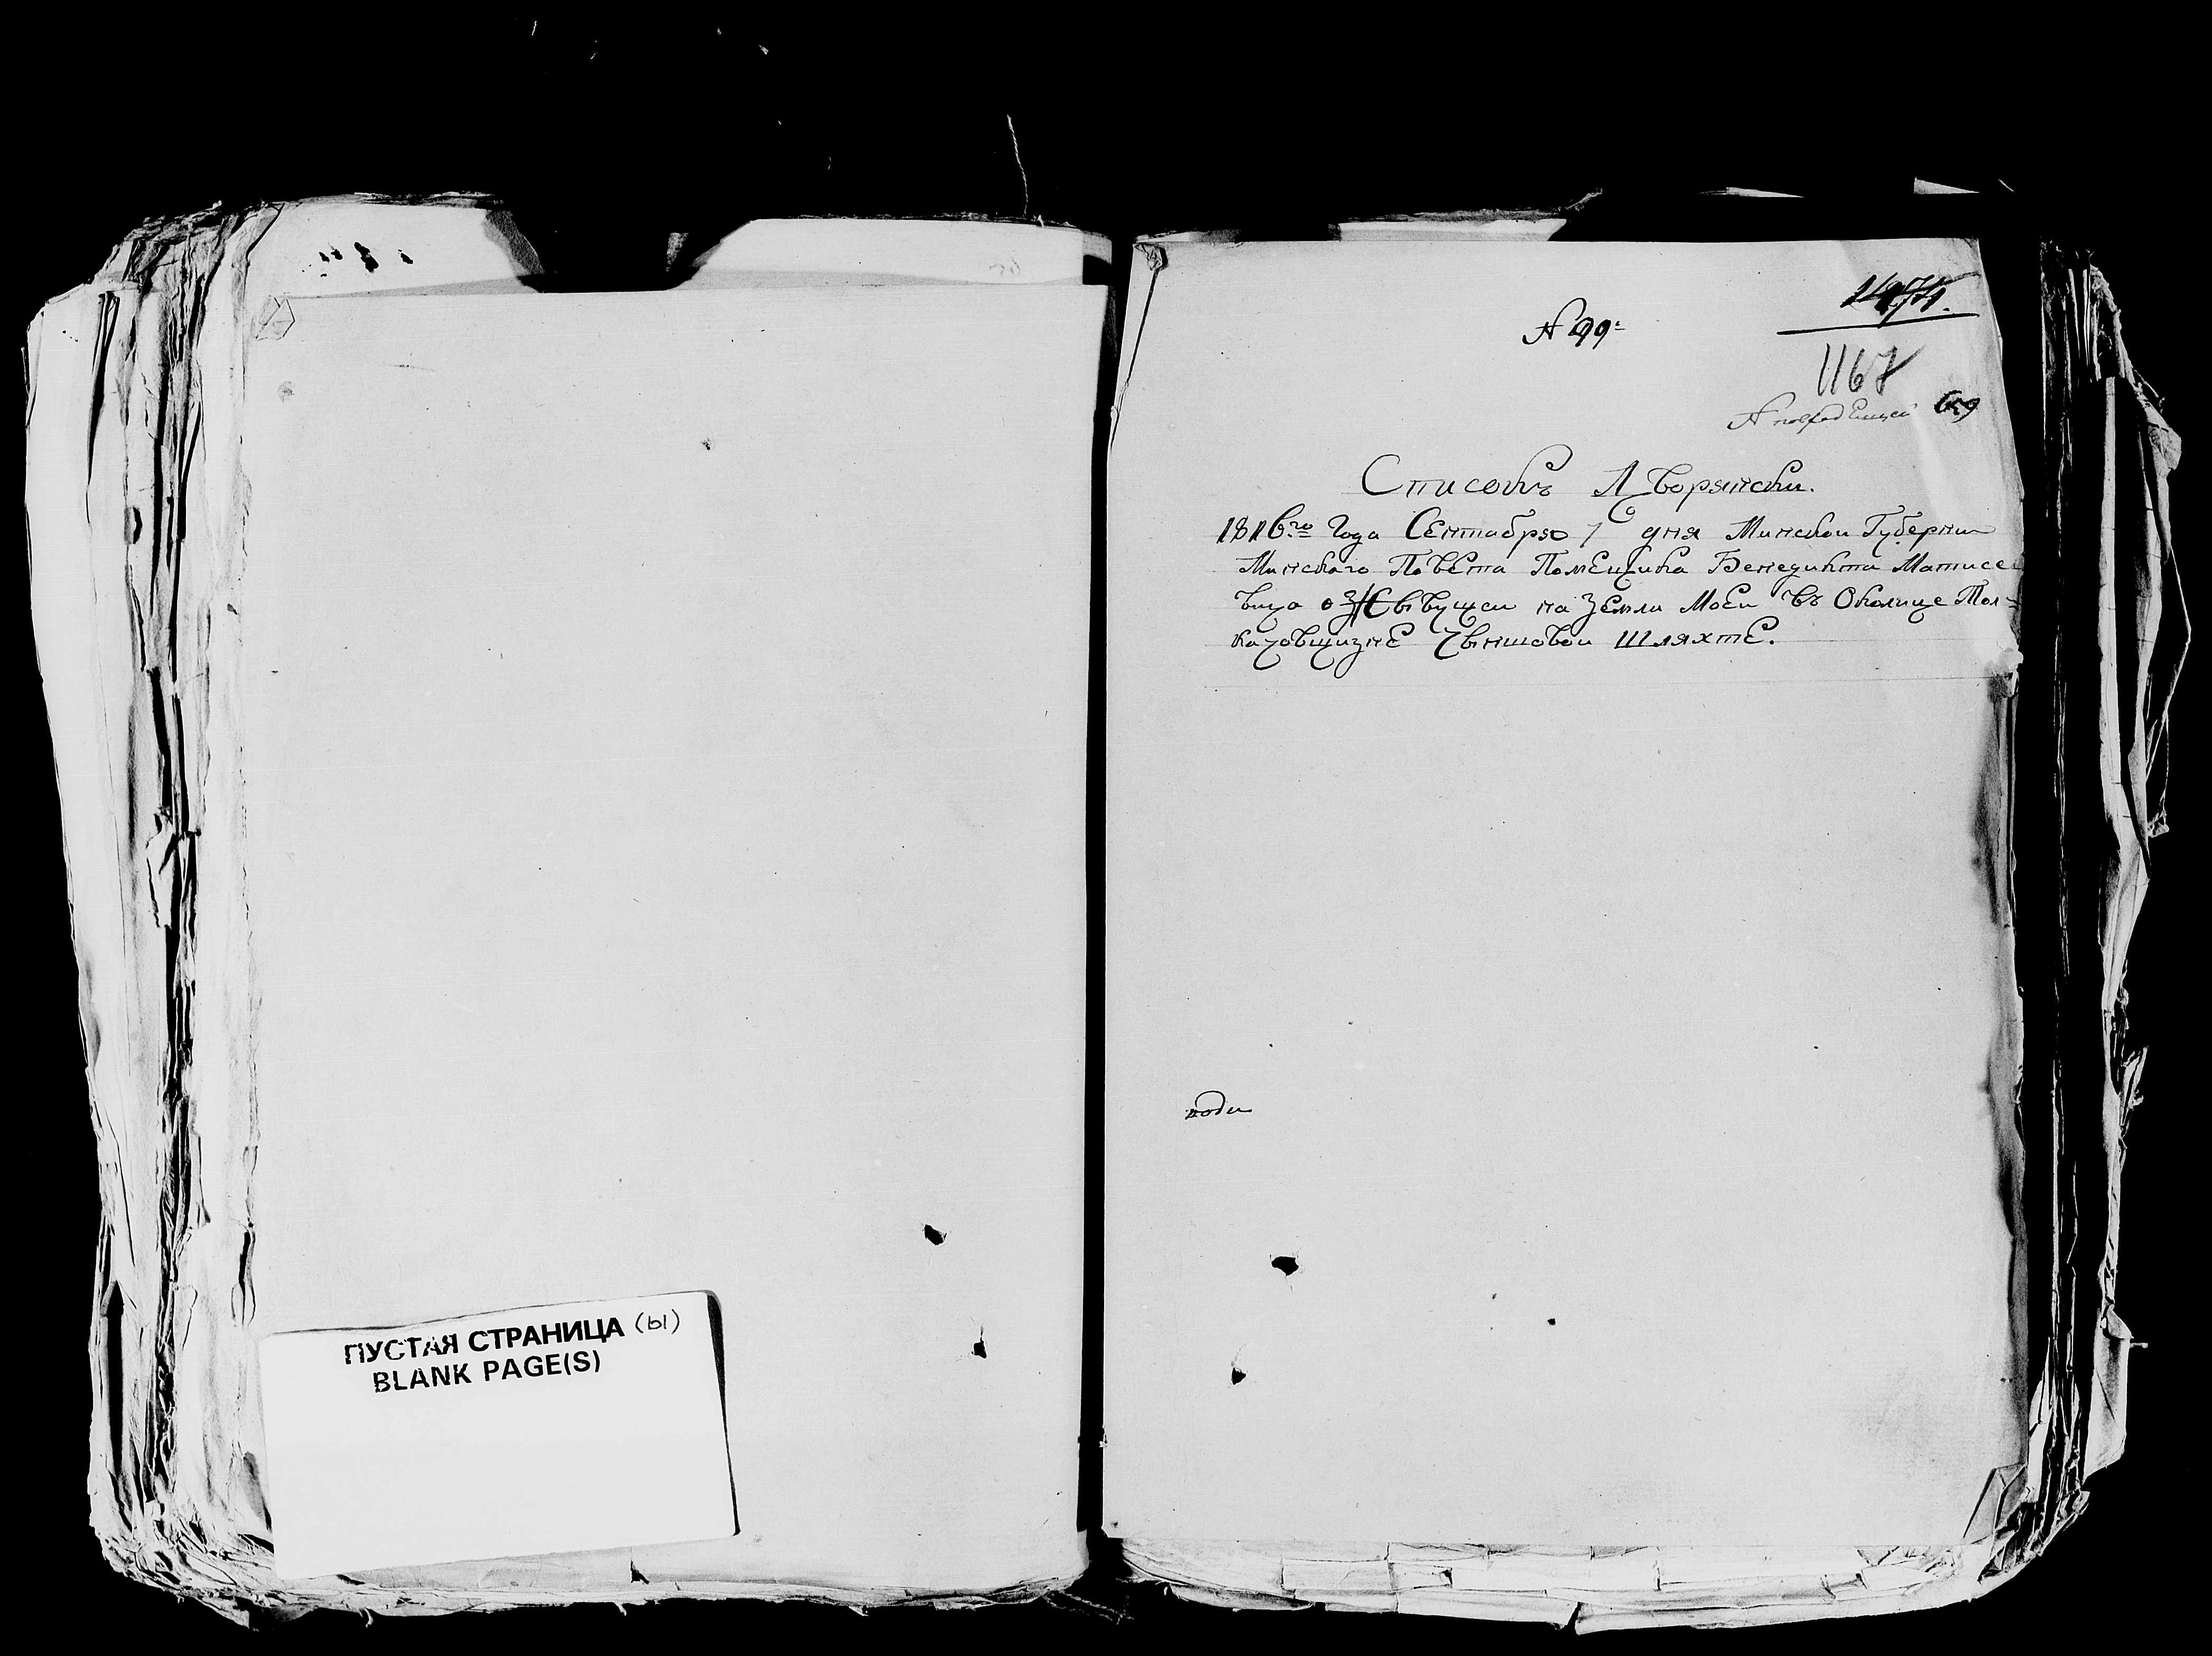 ПУСТАЯ СТРАНИЦА (ы)
BLANK PAGE(S)
№ 99:
1167
659
Списокъ Дворянски.
1816го Года Сентабря 7 дня Минскои Губернии
Минского Повета Помещика Бенедикта Матусе
вича о Жывущеи на Земли Моеи въ Околице Тол=
качовщизне Чыншовои Шляхте.